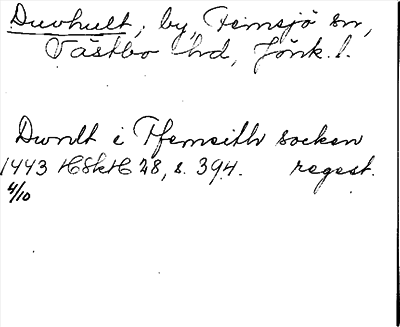 Duvhult, by, Femsjö sn,
Västbo hd, Jönk. l.
Duvult i Ffemsith socken
1443 HSkH 28, s. 394. regest.
4/10